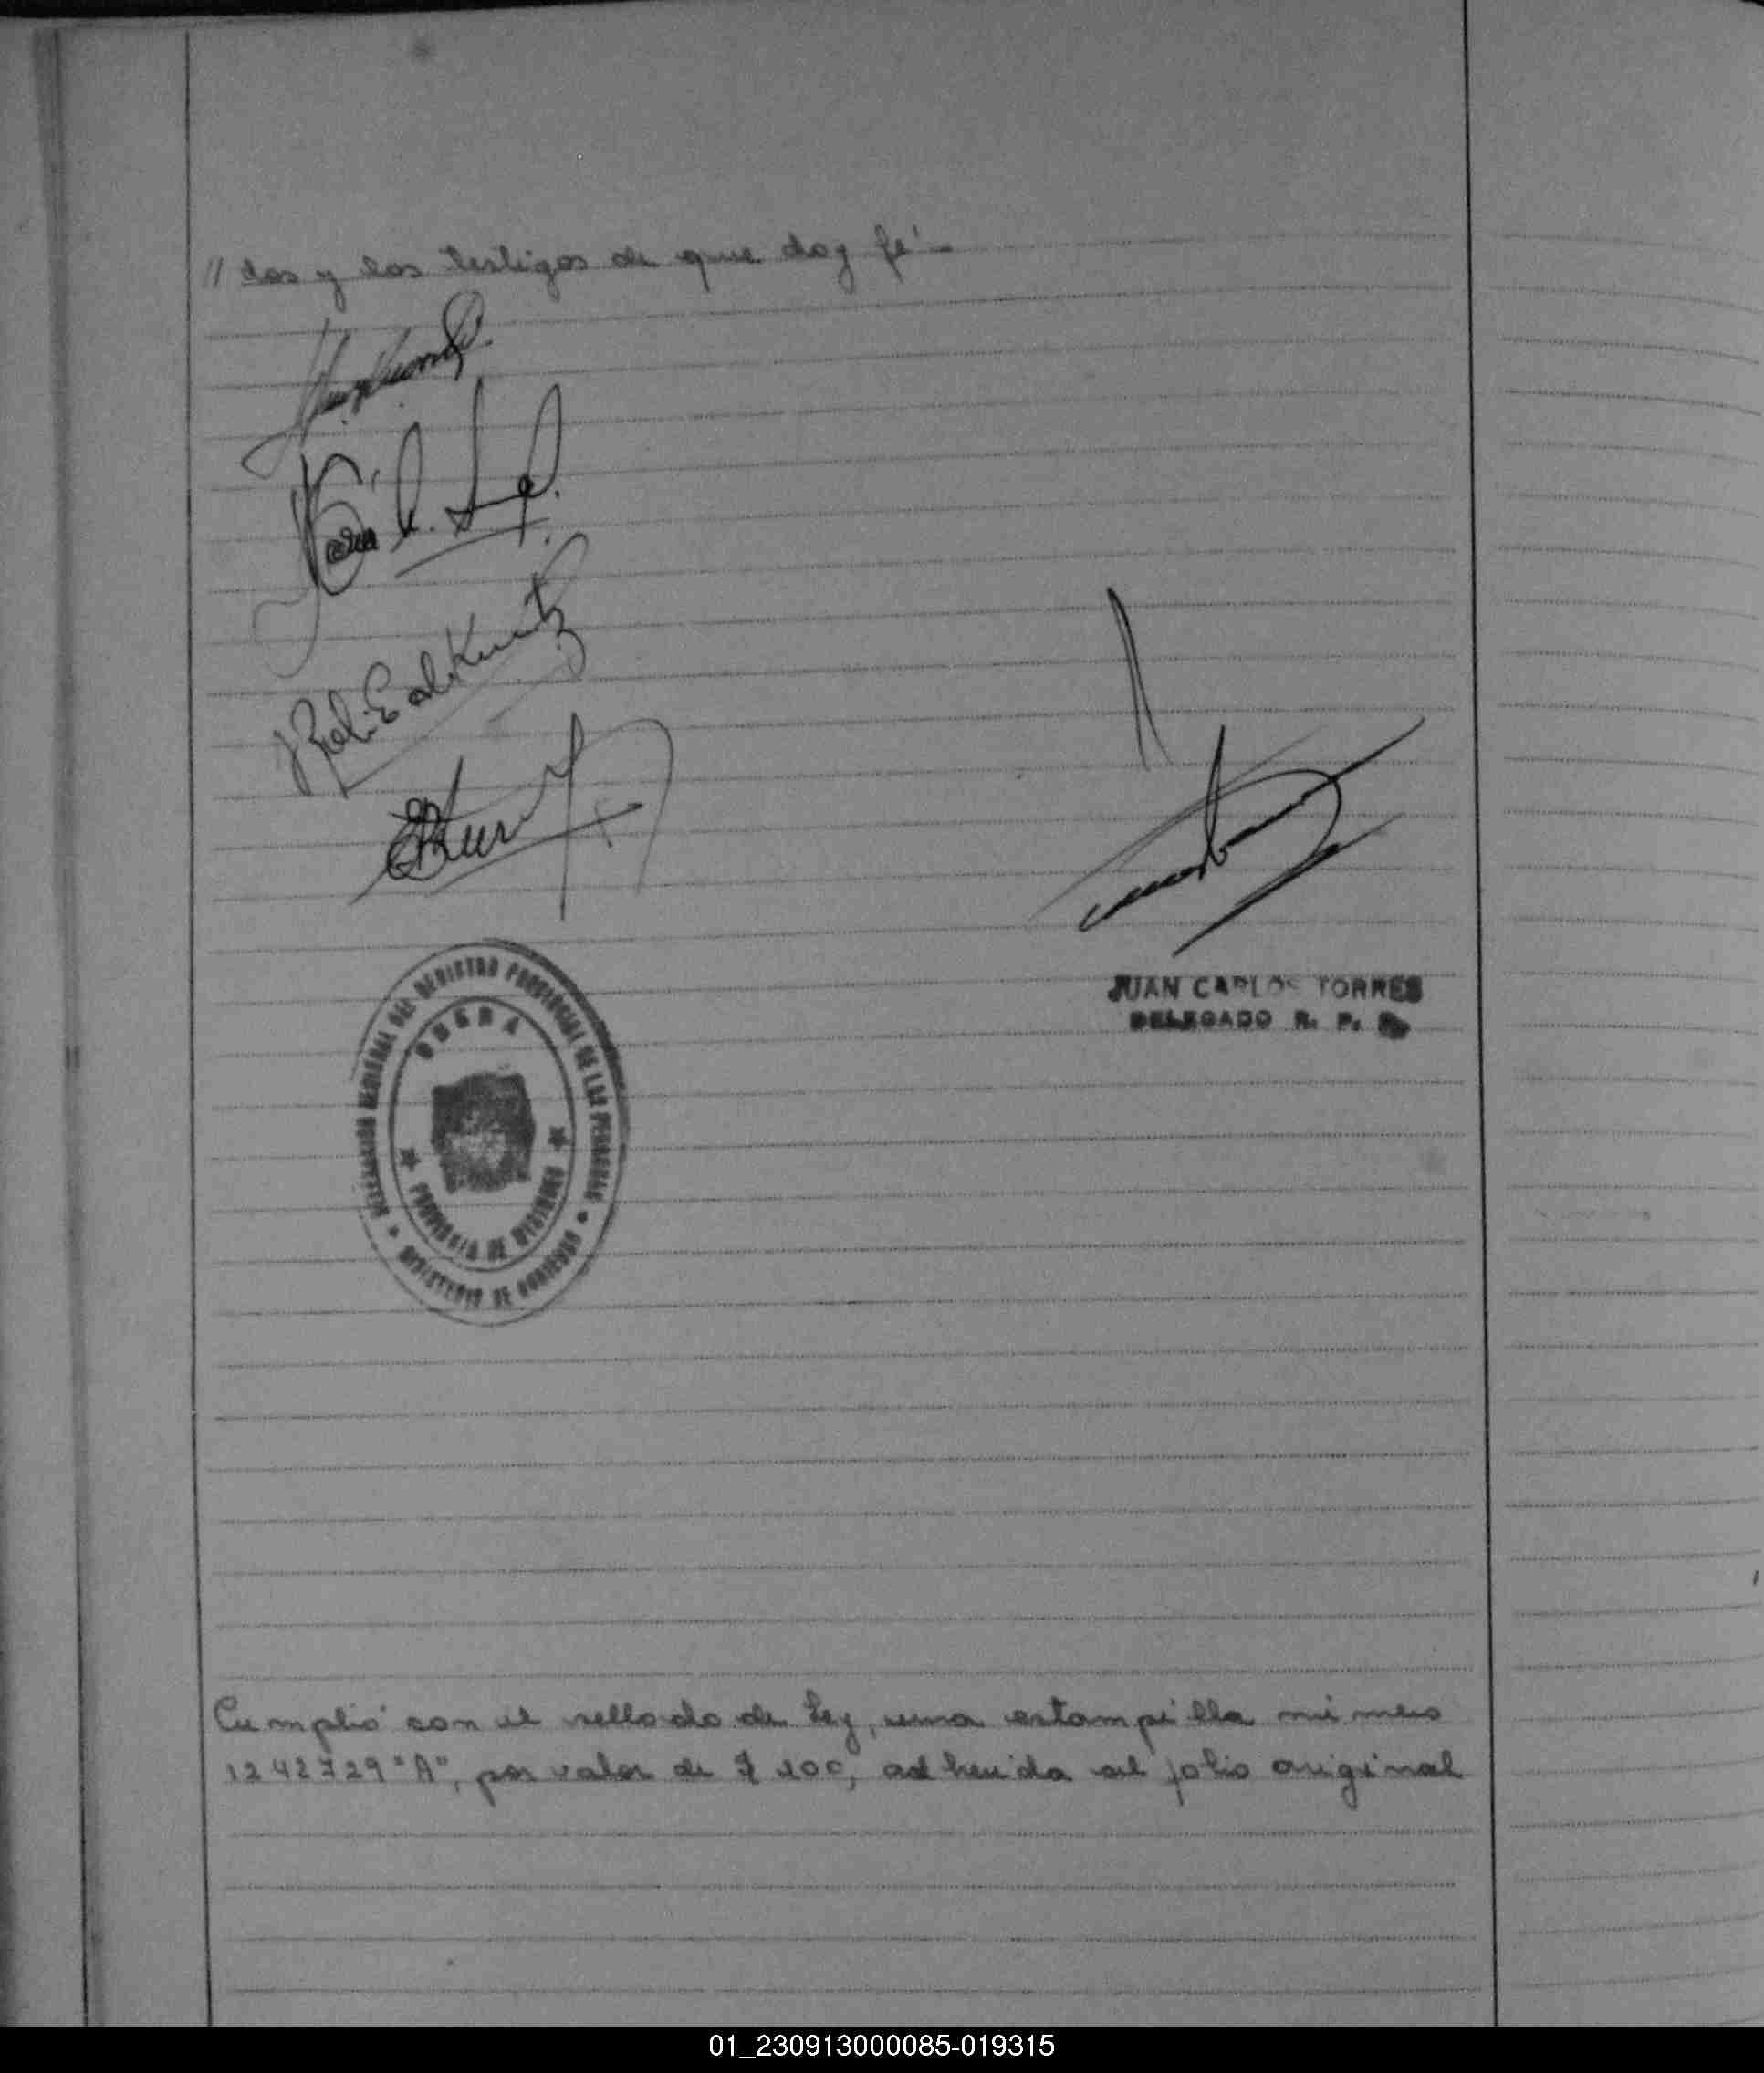 // dos y los testigos de que doy fé.-
JUAN CARLOS TORRES
DELEGADO R. P. P.
DELEGACION REGIONAL DEL REGISTRO PROVINCIAL DE LAS PERSONAS
OBERA
PROVINCIA DE MISIONES
MINISTERIO DE GOBIERNO
Cumplió con el sellado de Ley, una estampilla número
1242729 "A", por valor de $ 100, adherida al folio original
01_230913000085-019315